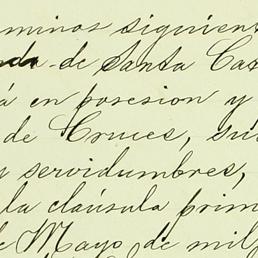 minos siguient
da de Santa Ca
á en posesion y
de Cruces, sú
y servidumbres,
la cláusula prim
de Mayo de mil